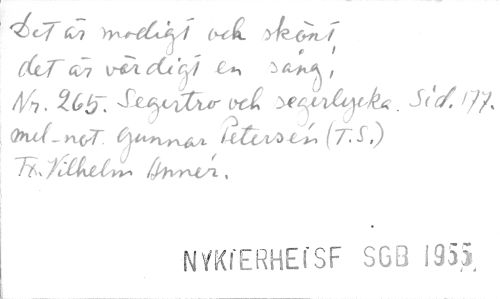 Det är modigt och skönt
det är värdigt en sång,
Nr. 265. Segertro och segerlycka. Sid. 177.
mel-not. Gunnar Petersén (T.S.)
Tx. Vilhelm Annér.
NYKTERHETSF SGB 1955